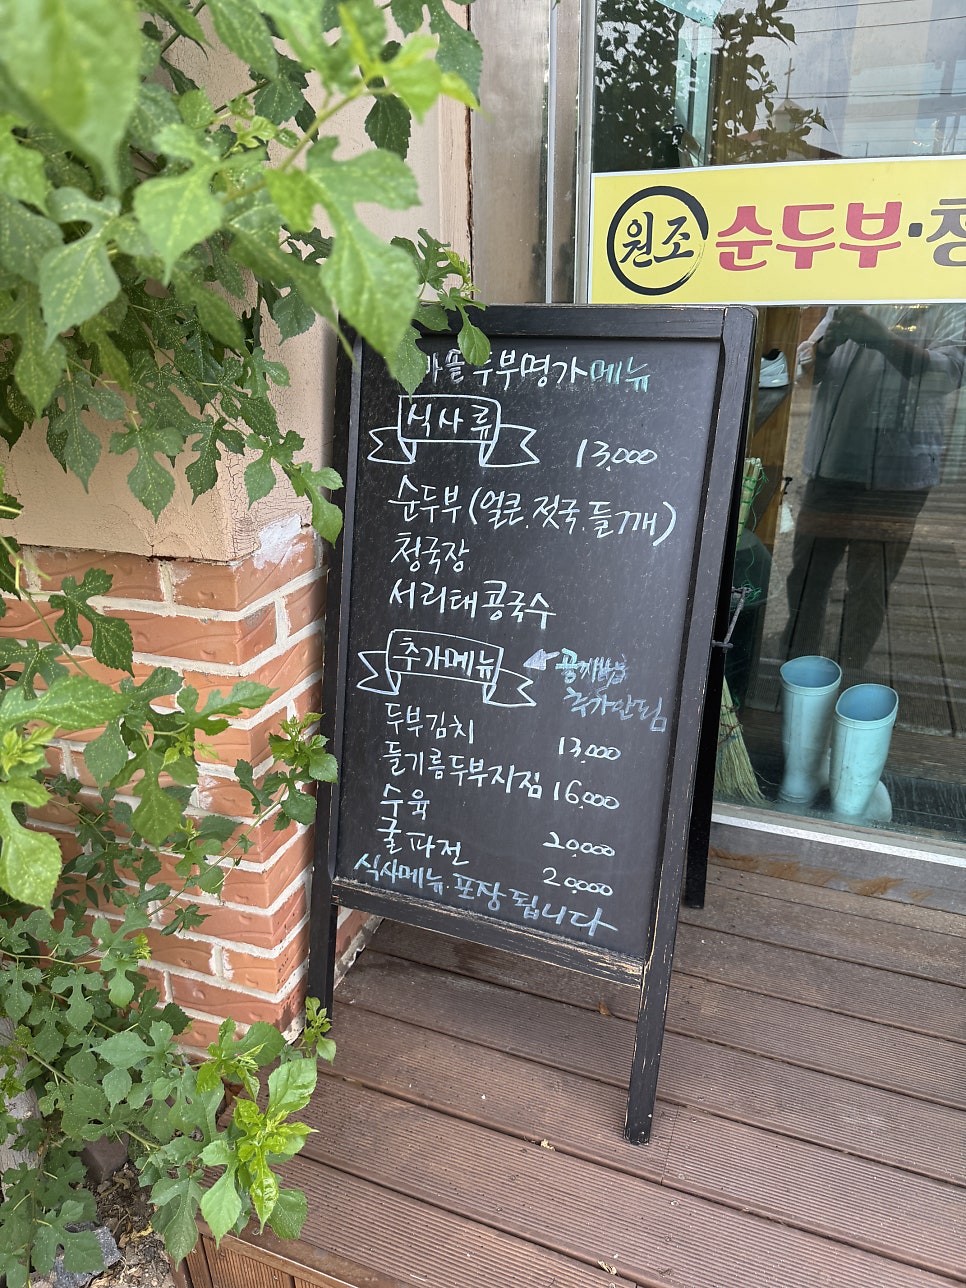 원조 순두부·청
바슬두부명가메뉴
식사류
13,000
순두부(얼큰.젓국.들깨)
청국장
서리태콩국수
추가메뉴
추가안됨
두부김치 13,000
들기름두부지짐 16,000
수육 20,000
굴파전 20,000
식사메뉴.포장됩니다